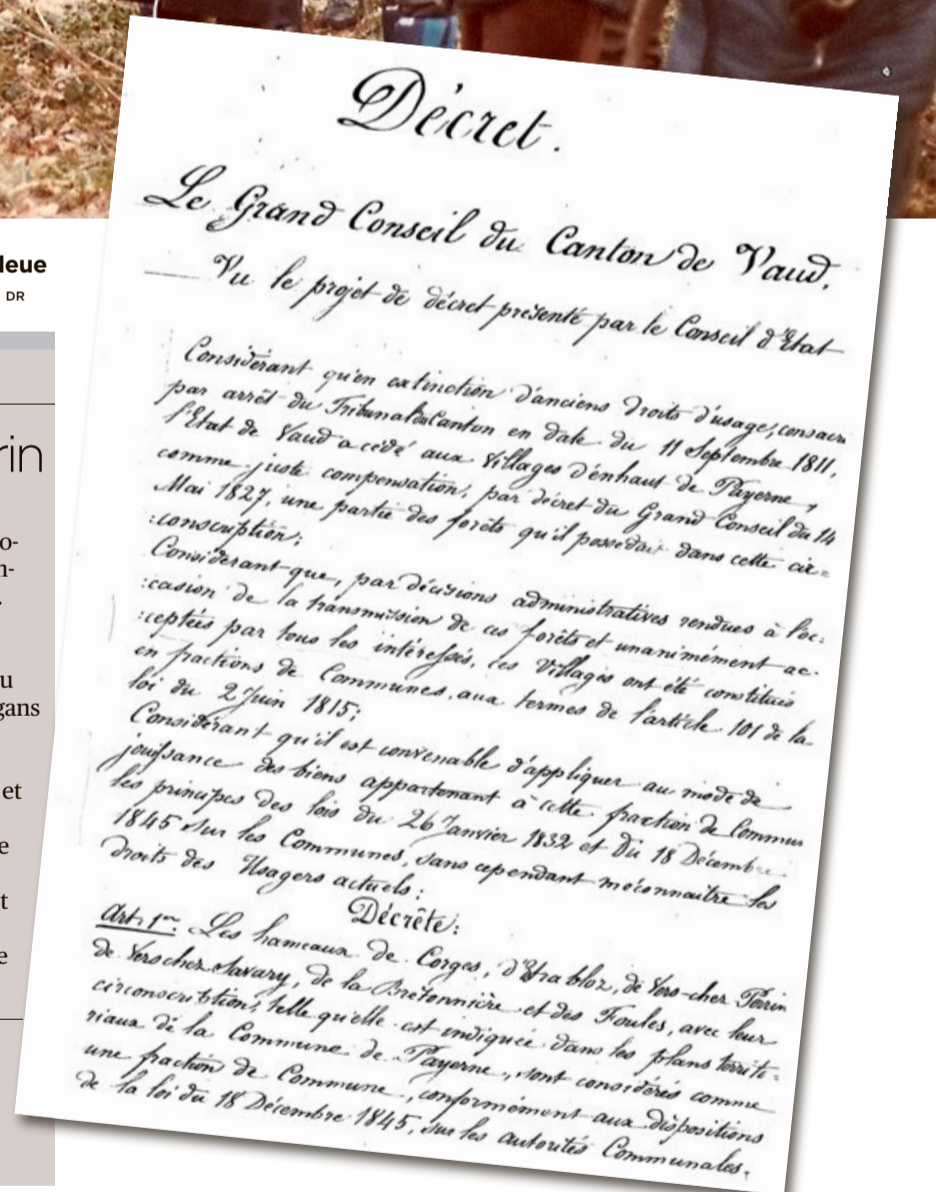 leue
DR
rin
o-
n-
.
u
gans
et
e
t
e
Décret.
Le Grand Conseil du Canton de Vaud,
Vu le projet de décret présenté par le Conseil d'Etat
Considérant qu'en extinction d'anciens droits d'usage, consacrés
par arrêt du Tribunal du Canton en date du 11 Septembre 1811,
l'Etat de Vaud a cédé aux Villages d'enhaut de Payerne,
comme juste compensation, par décret du Grand Conseil du 14
Mai 1827, une partie des forêts qu'il possédait dans cette cir=
:conscription;
Considérant que, par décisions administratives rendues à l'oc:
:casion de la transmission de ces forêts et unanimément ac-
:ceptées par tous les intéressés, ces Villages ont été constitués
en fractions de Communes, aux termes de l'article 101 de la
loi du 2 Juin 1815;
Considérant qu'il est convenable d'appliquer au mode de
jouissance des biens appartenant à cette fraction de Commune
les principes des lois du 26 Janvier 1832 et du 18 Décembre
1845 sur les Communes, sans cependant méconnaître les
droits des Usagers actuels:
Décrète:
Art. 1er. Les hameaux de Corges, d'Etrabloz, de Vers-chez Perrin
de Vers chez Savary, de la Bretonnière et des Foules, avec leur
circonscription, telle qu'elle est indiquée dans les plans territo=
riaux de la Commune de Payerne, sont considérés comme
une fraction de Commune, conformément aux dispositions
de la loi du 18 Décembre 1845, sur les autorités Communales.